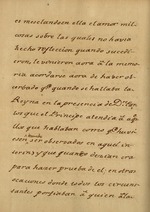 es mesclandsen ella el amor mil
cosas sobre las quales no havia
hecho reflecion quando sucedi-
eron, le venieron aora á la memo
ria acordarse aora de haver ob-
cerbado q.e quando se hallaba la
Reyna en la presencia de D.n
los que el Principe atendia à aq.
llos que hablaban como
ser observados en aquel in-
y que quando decian
para hacer prueba de el, en otras
ocaciones donde todos los circuns-
tantes porfiaban à quien